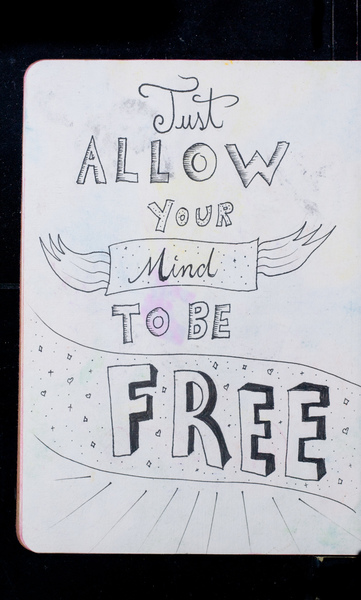 Just
ALLOW
YOUR
Mind
TO BE
FREE